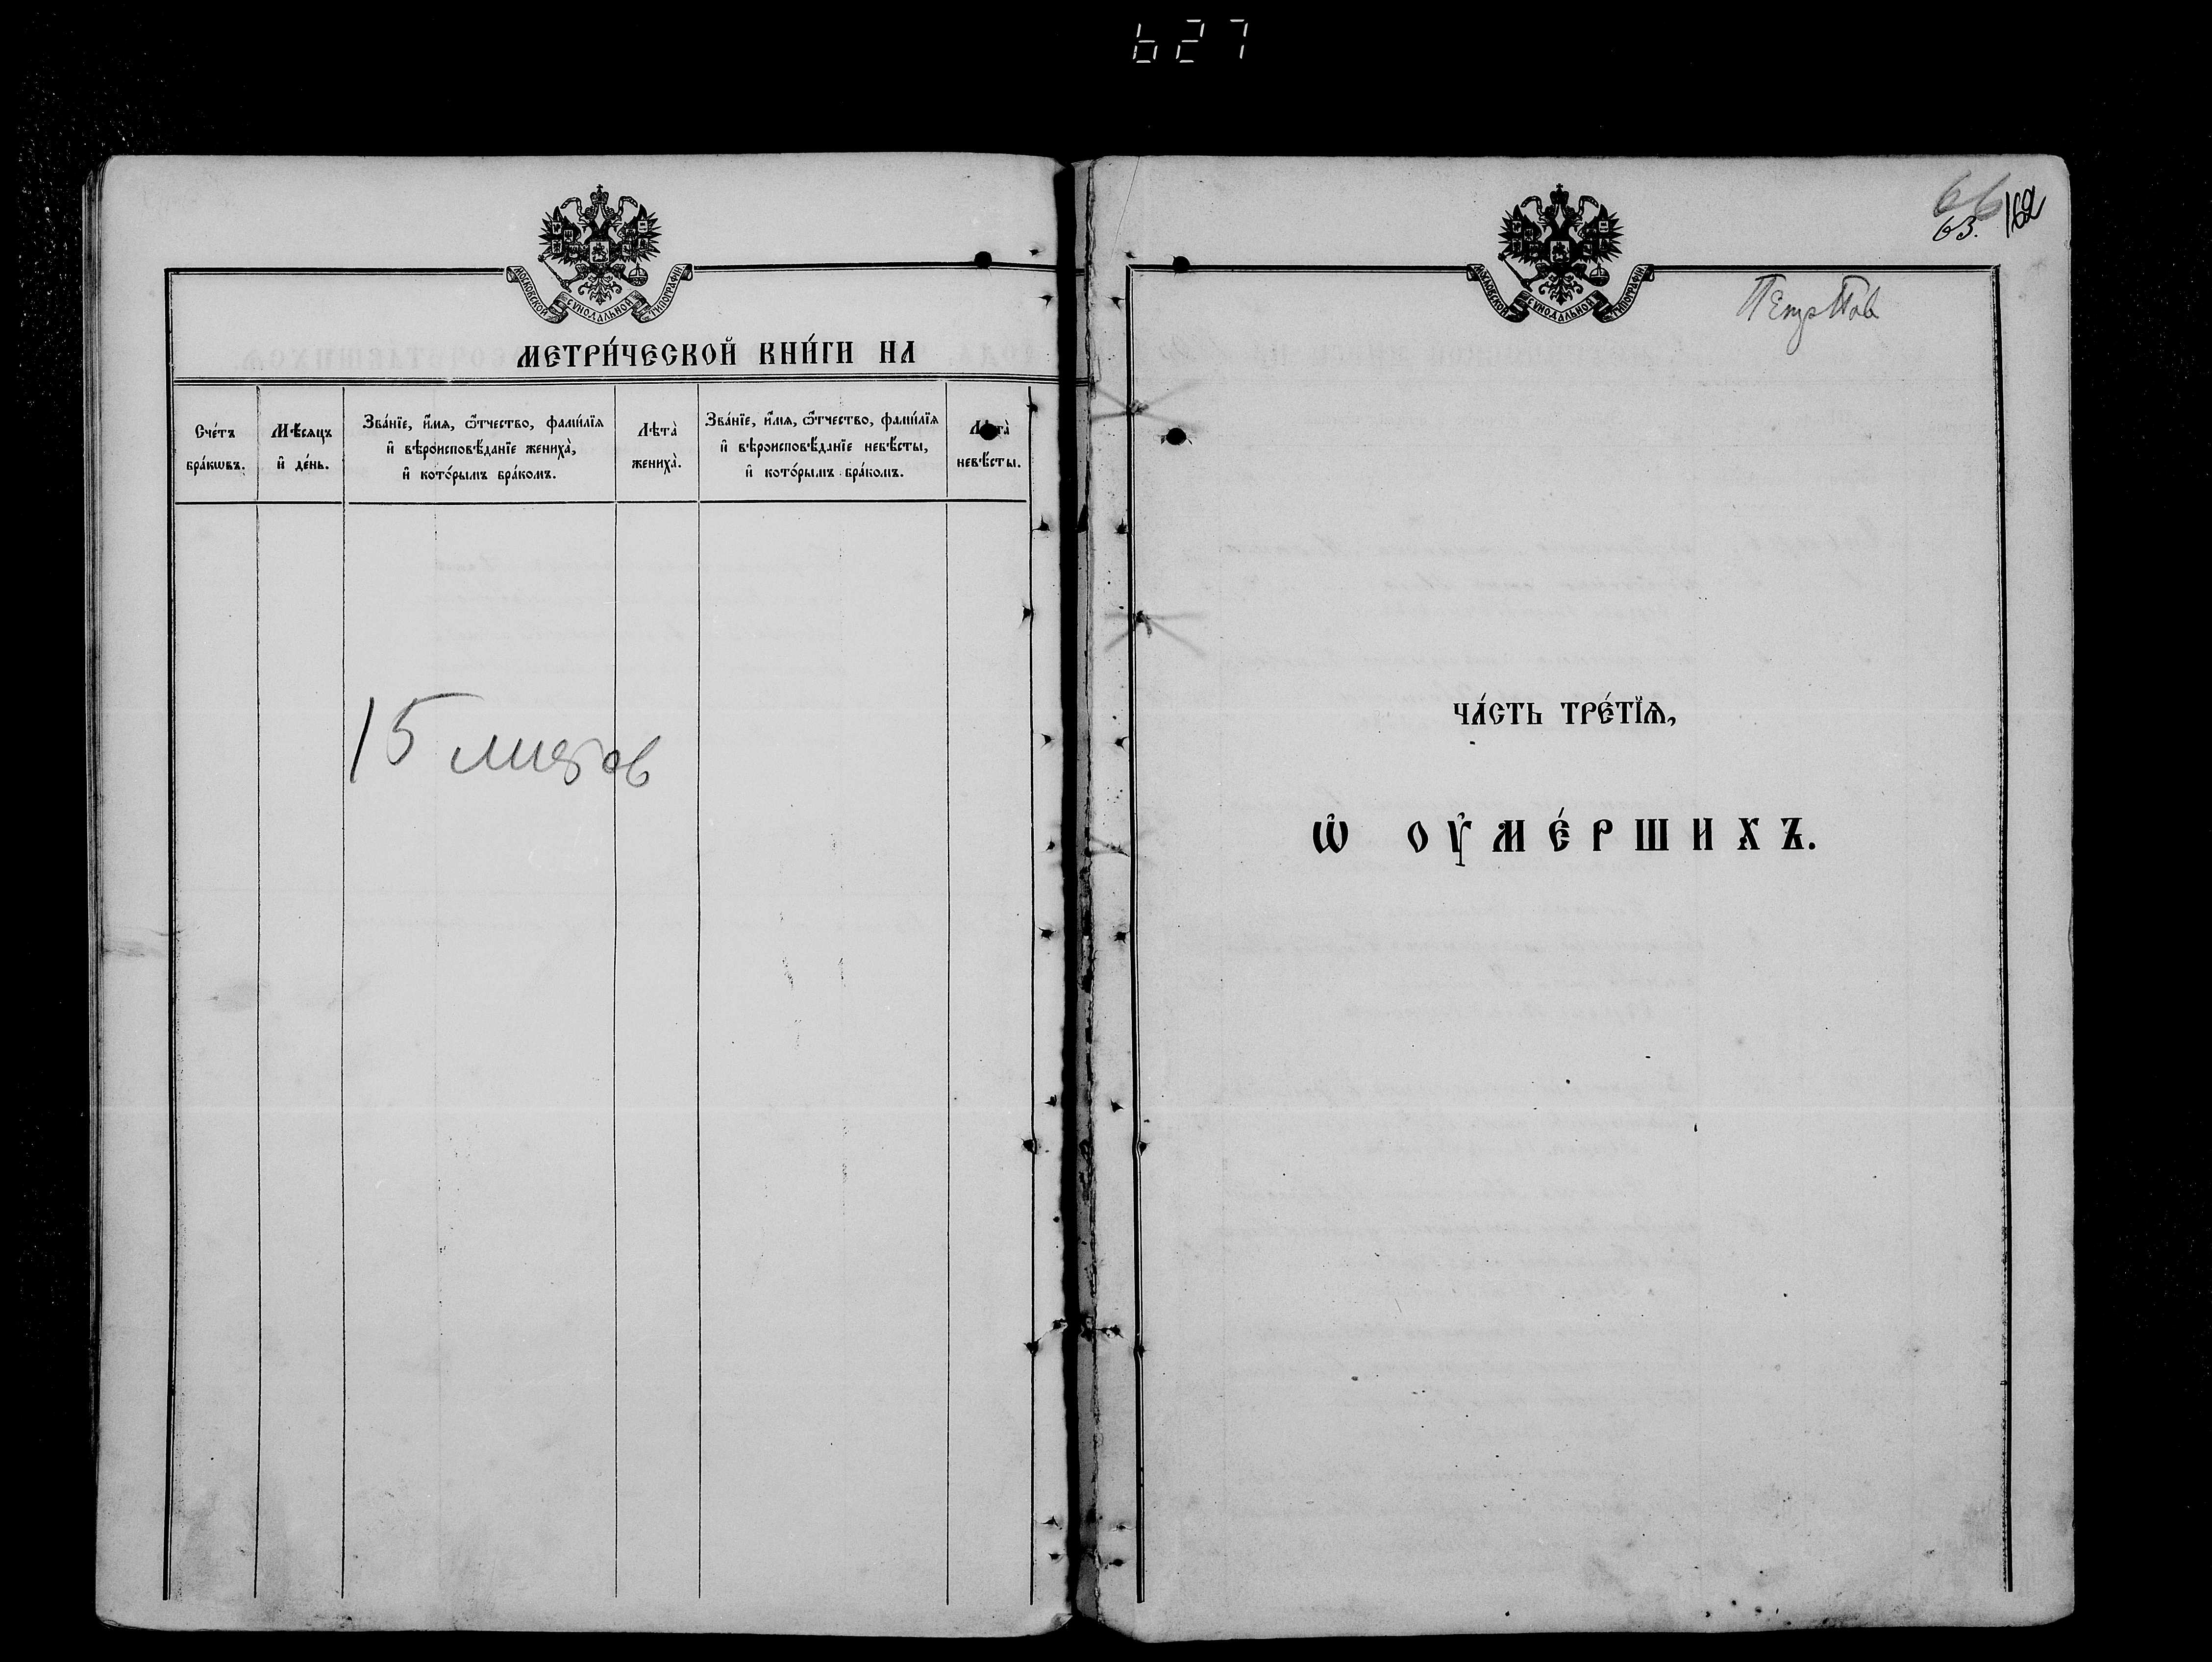 627
МОСКОВСКОЙ СѴНОДАЛЬНОЙ ТИПОГРАФІИ
МЕТРИ́ЧЕСКОЙ КНИ́ГИ НА
Сче́тъ бра́кѡвъ.
Мѣ́сяцъ и҆ де́нь.
Зва́нїе, и҆́мѧ, ѻ҆́тчество, фами́лїѧ
и҆ вѣроисповѣ́данїе жениха̀,
и҆ кото́рымъ бра́комъ.
Лѣта̀ жениха̀.
Зва́нїе, и҆́мѧ, ѻ҆́тчество, фами́лїѧ
и҆ вѣроисповѣ́данїе невѣ́сты,
и҆ кото́рымъ бра́комъ.
Лѣта̀ невѣ́сты.
15 листов
66
63.
162
МОСКОВСКОЙ СѴНОДАЛЬНОЙ ТИПОГРАФІИ
ЧА́СТЬ ТРЕ́ТЇѦ,
Ѡ҆ ОУ҆МЕ́РШИХЪ.